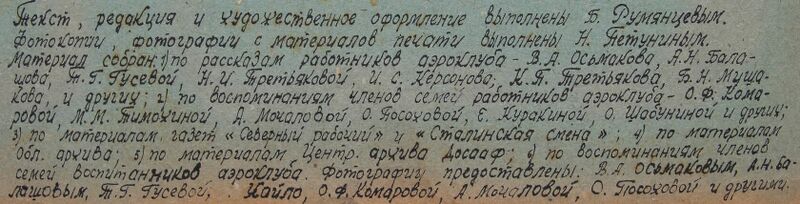 Текст, редакция и художественное оформление выполнены Б. Румянцевым.
Фотокопии, фотографии с материалов печати выполнены Н. Петуниным.
Материал собран: 1) по рассказам работников аэроклуба - В.А. Осьмакова, А.Н. Бала-
шова, Т.Г. Гусевой, Н.И. Третьяковой, И.С. Керсонова; К.Я. Третьякова, Б.Н. Муша-
кова, и других; 2) по воспоминаниям членов семей работников аэроклуба - О.Ф. Кома-
ровой, М.М. Тимохиной, А. Мочаловой, О. Посоховой, Е. Куракиной, О. Шабуниной и других;
3) по материалам газет «Северный рабочий» и «Сталинская смена»; 4) по материалам
Обл. архива; 5) по материалам Центр. архива Досааф; 6) по воспоминаниям членов
семей воспитанников аэроклуба. Фотографии предоставлены: В.А. Осьмаковым, А.Н. Ба-
лашовым, Т.Г. Гусевой, Хайло, О.Ф. Комаровой, А. Мочаловой, О. Посоховой и другими.